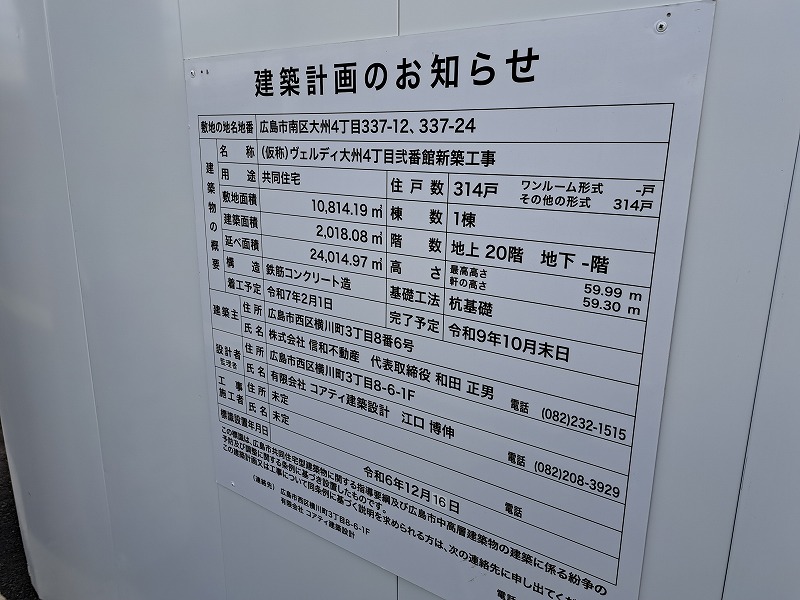 建築計画のお知らせ
敷地の地名地番 広島市南区大州4丁目337-12、337-24
建築物の概要
名称 (仮称)ヴェルディ大州4丁目弐番館新築工事
用途 共同住宅
住戸数 314戸 ワンルーム形式 -戸
その他の形式 314戸
敷地面積 10,814.19㎡
棟数 1棟
建築面積 2,018.08㎡
階数 地上20階 地下-階
延べ面積 24,014.97㎡
高さ 最高高さ 59.99m
軒の高さ 59.30m
構造 鉄筋コンクリート造
基礎工法 杭基礎
着工予定 令和7年2月1日
完了予定 令和9年10月末日
建築主 住所 広島市西区横川町3丁目8番6号
氏名 株式会社 信和不動産 代表取締役 和田 正男 電話 (082)232-1515
設計者 監理者 住所 広島市西区横川町3丁目8-6-1F
氏名 有限会社 コアティ建築設計 江口 博伸 電話 (082)208-3929
工事施工者 住所 未定
氏名 未定 電話
標識設置年月日 令和6年12月16日
この標識は、広島市共同住宅型建築物に関する指導要綱及び広島市中高層建築物の建築に係る紛争の
予防及び調整に関する条例に基づき設置したものです。
この建築計画又は工事について同条例に基づく説明を求められる方は、次の連絡先に申し出てくだ
(連絡先) 広島市西区横川町3丁目8-6-1F
有限会社 コアティ建築設計 電